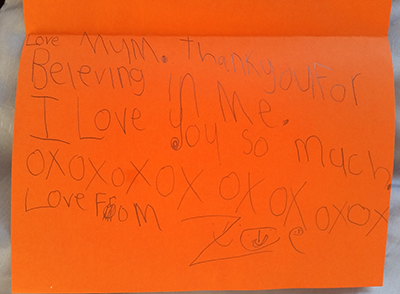 Love Mum. thankyou For
Beleving in Me.
I Love you so much
OXOXOXOXOXOXOXOX
Love From
Zoe